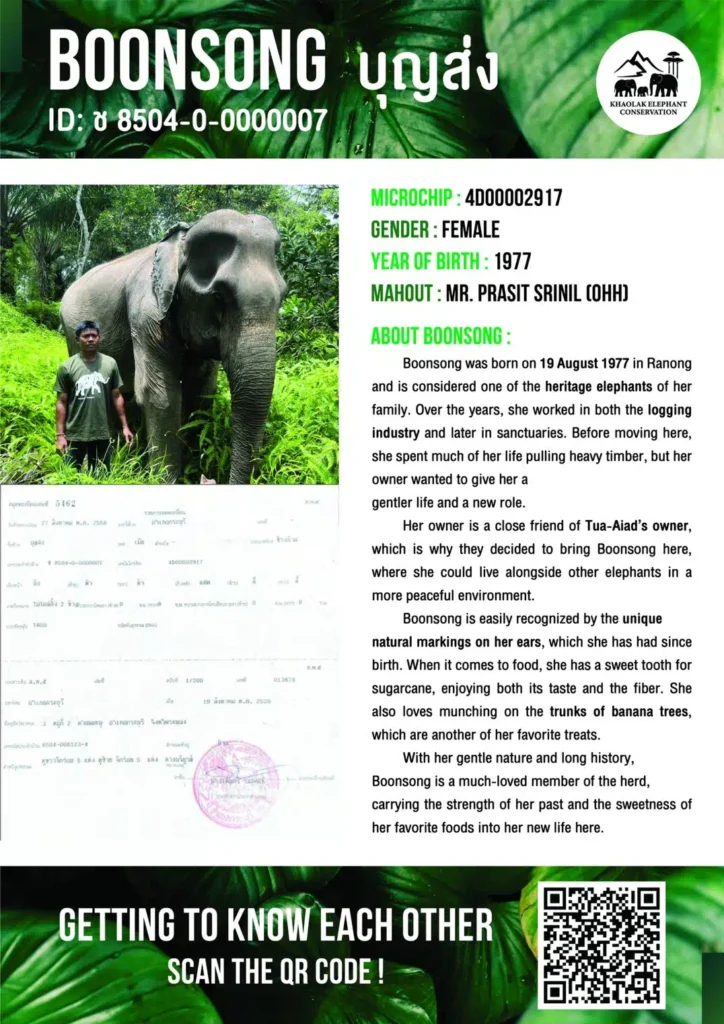 BOONSONG บุญส่ง
ID: ช 8504-0-0000007
KHAOLAK ELEPHANT
CONSERVATION
MICROCHIP : 4D00002917
GENDER : FEMALE
YEAR OF BIRTH : 1977
MAHOUT : MR. PRASIT SRINIL (OHH)
ABOUT BOONSONG :
Boonsong was born on 19 August 1977 in Ranong
and is considered one of the heritage elephants of her
family. Over the years, she worked in both the logging
industry and later in sanctuaries. Before moving here,
she spent much of her life pulling heavy timber, but her
owner wanted to give her a
gentler life and a new role.
Her owner is a close friend of Tua-Aiad's owner,
which is why they decided to bring Boonsong here,
where she could live alongside other elephants in a
more peaceful environment.
Boonsong is easily recognized by the unique
natural markings on her ears, which she has had since
birth. When it comes to food, she has a sweet tooth for
sugarcane, enjoying both its taste and the fiber. She
also loves munching on the trunks of banana trees,
which are another of her favorite treats.
With her gentle nature and long history,
Boonsong is a much-loved member of the herd,
carrying the strength of her past and the sweetness of
her favorite foods into her new life here.
5462
8504-0-0000007 4D00002917
GETTING TO KNOW EACH OTHER
SCAN THE QR CODE !